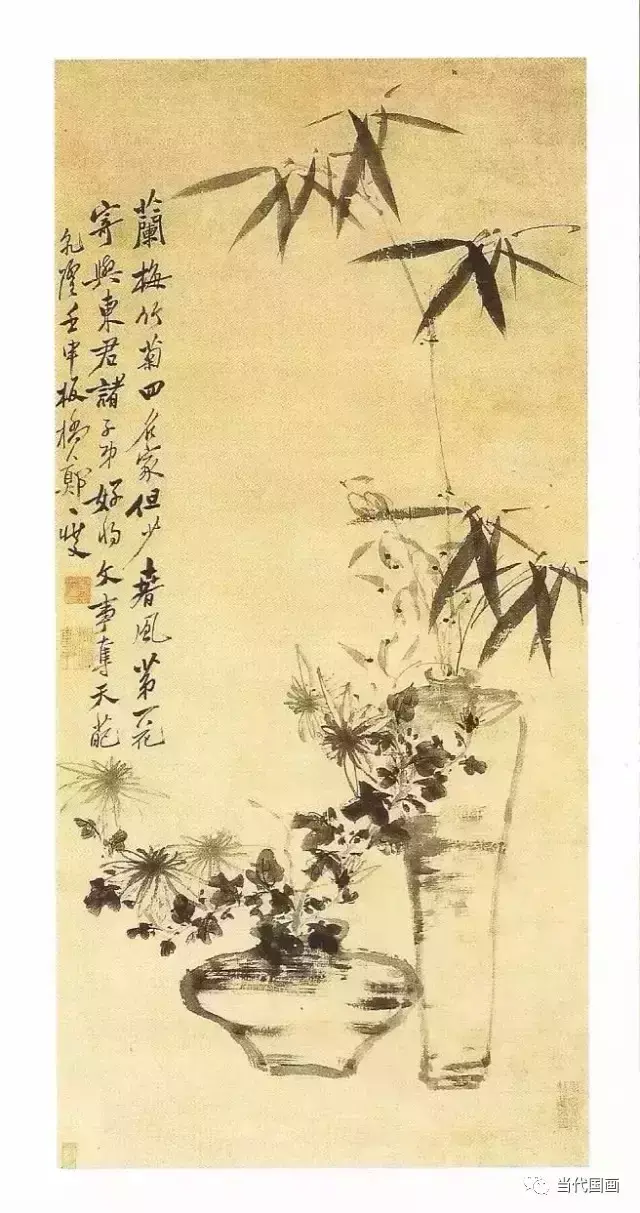 蘭梅竹菊四名家但少春風第一花
寄與東君諸子弟好將文事奪天葩
乾隆壬申板橋鄭燮
当代国画